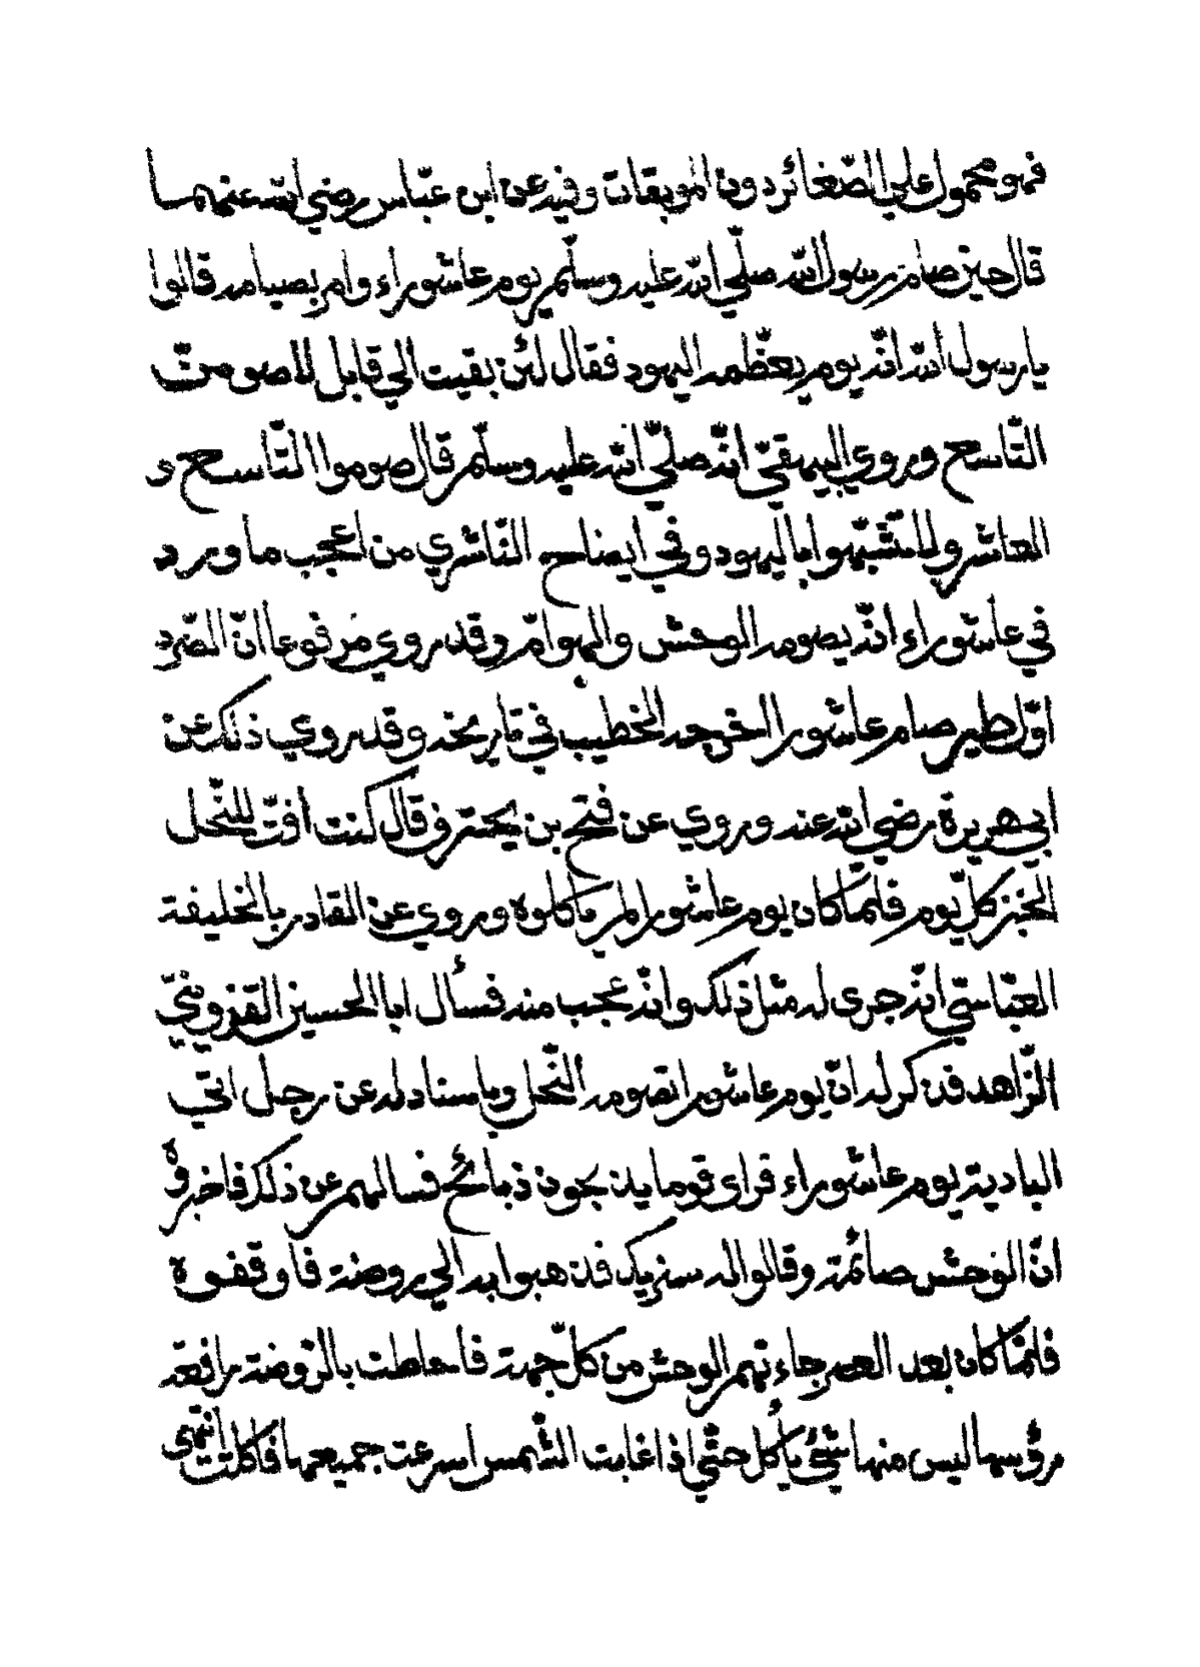 فهو محمول علي الصّغائر دون الموبقات وفيه عن ابن عبّاس رضي الله عنهما
قال حين صام رسول الله صلّي الله عليه وسلّم يوم عاشوراء وامر بصيامه قالوا
يا رسول الله انّه يوم يعظّمه اليهود فقال لئن بقيت الي قابل لاصومنّ
التّاسع وروي البيهقيّ انّه صلّي الله عليه وسلّم قال صوموا التّاسع و
العاشر ولا تتشبّهوا باليهود وفي ايضاح النّاشري من اعجب ما ورد
في عاشوراء انّه يصومه الوحش والهوامّ وقد روي مرفوعا انّ الصّرد
اوّل طير صام عاشورا اخرجه الخطيب في تاريخه وقد روي ذلك عن
ابي هريرة رضي الله عنه وروي عن فتح بن يحترف قال كنت افتّ للنّحل
الخبز كلّ يوم فلمّا كان يوم عاشورا لم ياكلوه وروي عن القادر بالخليفة
العبّاسّي انّه جري له مثل ذلك وانّه عجب منه فسأل ابا الحسين القزوينيّ
الزّاهد فذكر له انّ يوم عاشورا تصومه النّحل وباسناد له عن رجل اتي
البادية يوم عاشوراء فراي قوما يذبحون ذبائح فسالهم عن ذلك فاخبروه
انّ الوحش صائمة وقالوا له سنريك فذهبوا به الي روضة فاوقفوه
فلمّا كان بعد العصر جاءتهم الوحش من كلّ جهة فاحاطت بالرّوضة رافعة
رؤسها ليس منها شئ ياكل حتّي اذا غابت الشّمس اسرعت جميعها فاكلت انتهي